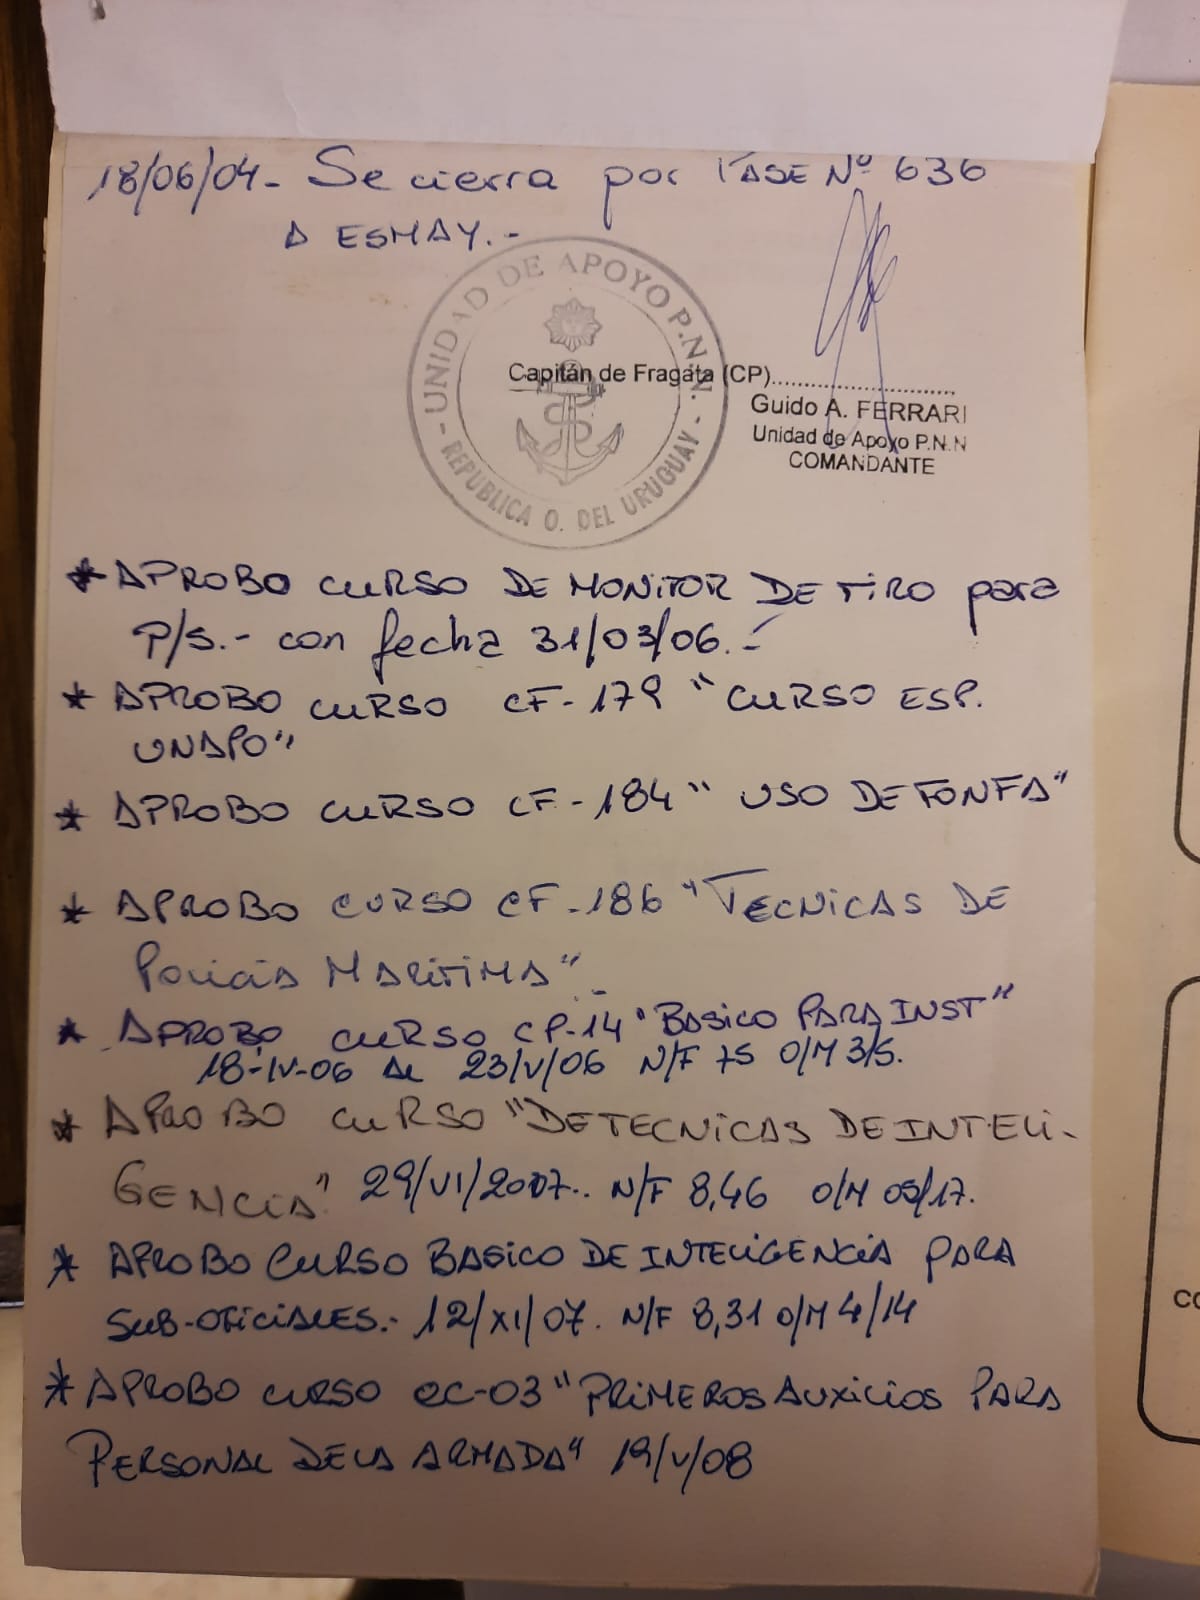 18/06/04- Se cierra por PASE Nº 636
A ESMAY.-
- UNIDAD DE APOYO P.N.N. -
REPUBLICA O. DEL URUGUAY
Capitán de Fragata (CP)..............................
Guido A. FERRARI
Unidad de Apoyo P.N.N
COMANDANTE
* APROBO CURSO DE MONITOR DE TIRO para
P/S.- con fecha 31/03/06.-
* APROBO CURSO CF-179 "CURSO ESP.
UNAPO"
* APROBO CURSO CF-184 "USO DE TONFA"
* APROBO CURSO CF-186 "TECNICAS DE
POLICIA MARITIMA"
* APROBO CURSO CP-14 "BASICO PARA INST"
18-IV-06 AL 23/V/06 N/F 75 O/M 3/5.
* APROBO CURSO "DE TECNICAS DE INTELI-
GENCIA" 29/VI/2007.. N/F 8,46 O/M 05/17.
* APROBO CURSO BASICO DE INTELIGENCIA PARA
SUB-OFICIALES.- 12/XI/07. N/F 8,31 O/M 4/14
* APROBO CURSO CC-03 "PRIMEROS AUXILIOS PARA
PERSONAL DE LA ARMADA" 19/V/08
CO